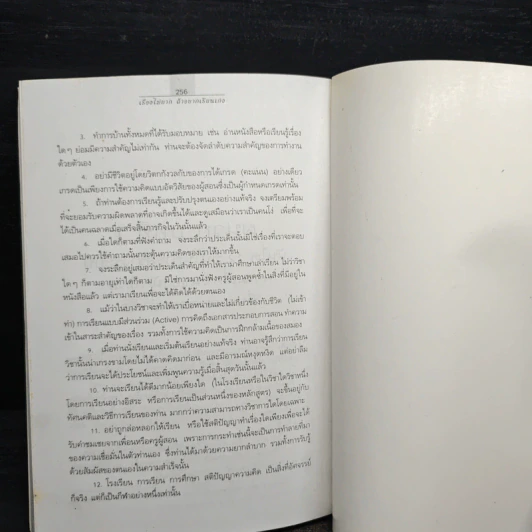 256
เรียนไม่ยาก ถ้าอยากเรียนเก่ง
3. ทำการบ้านทั้งหมดที่ได้รับมอบหมาย เช่น อ่านหนังสือหรือเรียนรู้เรื่อง
ใดๆ ย่อมมีความสำคัญไม่เท่ากัน ท่านจะต้องจัดลำดับความสำคัญของการทำงาน
ด้วยตัวเอง
4. อย่ามีชีวิตอยู่โดยวิตกกังวลกับของการได้เกรด (คะแนน) อย่างเดียว
เกรดเป็นเพียงการใช้ความคิดแบบอัตวิสัยของผู้สอนซึ่งเป็นผู้กำหนดเกรดเท่านั้น
5. ถ้าท่านต้องการเรียนรู้และปรับปรุงตนเองอย่างแท้จริง จงเตรียมพร้อม
ที่จะยอมรับความผิดพลาดที่อาจเกิดขึ้นได้และดูเสมือนว่าเราเป็นคนโง่ เพื่อที่จะ
ได้เป็นคนฉลาดเมื่อเสร็จสิ้นภารกิจในวันนั้นแล้ว
6. เมื่อใดก็ตามที่ฟังคำถาม จงระลึกว่าประเด็นนั้นมิใช่เรื่องที่เราจะตอบ
เสมอไปควรใช้คำถามนั้นกระตุ้นความคิดของเราให้มากขึ้น
7. จงระลึกอยู่เสมอว่าประเด็นสำคัญที่ทำให้เรามาศึกษาเล่าเรียน ไม่ว่าวิชา
ใดๆ ก็ตามอายุเท่าใดก็ตาม มิใช่การมานั่งฟังครูผู้สอนพูดซ้ำในสิ่งที่มีอยู่ใน
หนังสือแล้ว แต่เรามาเรียนเพื่อจะได้คิดได้ด้วยตนเอง
8. แม้ว่าในบางวิชาจะทำให้เราเบื่อหน่ายและไม่เกี่ยวข้องกับชีวิต (ไม่เข้า
ท่า) การเรียนแบบมีส่วนร่วม (Active) การคิดถึงเอกสารประกอบการสอน ทำความ
เข้าในสาระสำคัญของเรื่อง รวมทั้งการใช้ความคิดเป็นการฝึกกล้ามเนื้อของสมอง
9. เมื่อท่านนั่งเรียนและเริ่มต้นเรียนอย่างแท้จริง ท่านอาจรู้สึกว่าการเรียน
วิชานั้นน่าเกรงขามโดยไม่ได้คาดคิดมาก่อน และมีอารมณ์หงุดหงิด แต่อย่าลืม
ว่าการเรียนจะได้ประโยชน์และเพิ่มพูนความรู้เมื่อสิ้นสุดวันนั้นแล้ว
10. ท่านจะเรียนได้ดีมากน้อยเพียงใด (ในโรงเรียนหรือในวิชาใดวิชาหนึ่ง
โดยการเรียนอย่างอิสระ หรือการเรียนเป็นส่วนหนึ่งของหลักสูตร) จะขึ้นอยู่กับ
ทัศนคติและวิธีการเรียนของท่าน มากกว่าความสามารถทางวิชาการใดโดยเฉพาะ
11. อย่าถูกล่อหลอกให้เรียน หรือใช้สติปัญญาทำเรื่องใดเพียงเพื่อจะได้
รับคำชมเชยจากเพื่อนหรือครูผู้สอน เพราะการกระทำเช่นนี้จะเป็นการทำลายที่มา
ของความเชื่อมั่นในตัวท่านเอง ซึ่งท่านได้มาด้วยความยากลำบาก รวมทั้งการรับรู้
ด้วยสัมผัสของตนเองในความสำเร็จนั้น
12. โรงเรียน การเรียน การศึกษา สติปัญญาความคิด เป็นสิ่งที่อัศจรรย์
ก็จริง แต่ก็เป็นกีฬาอย่างหนึ่งเท่านั้น